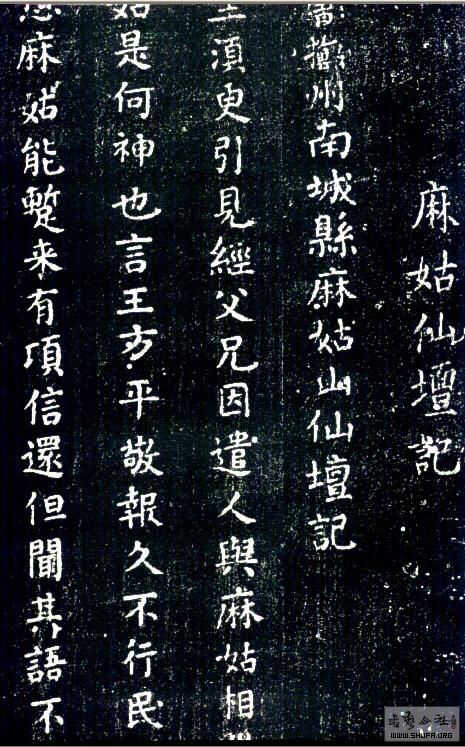 麻姑仙壇記
撫州南城縣麻姑山仙壇記
須臾引見經父兄因遣人與麻姑相
姑是何神也言王方平敬報久不行民
麻姑能蹔来有頃信還但聞其語不
WWW.SHUFA.ORG